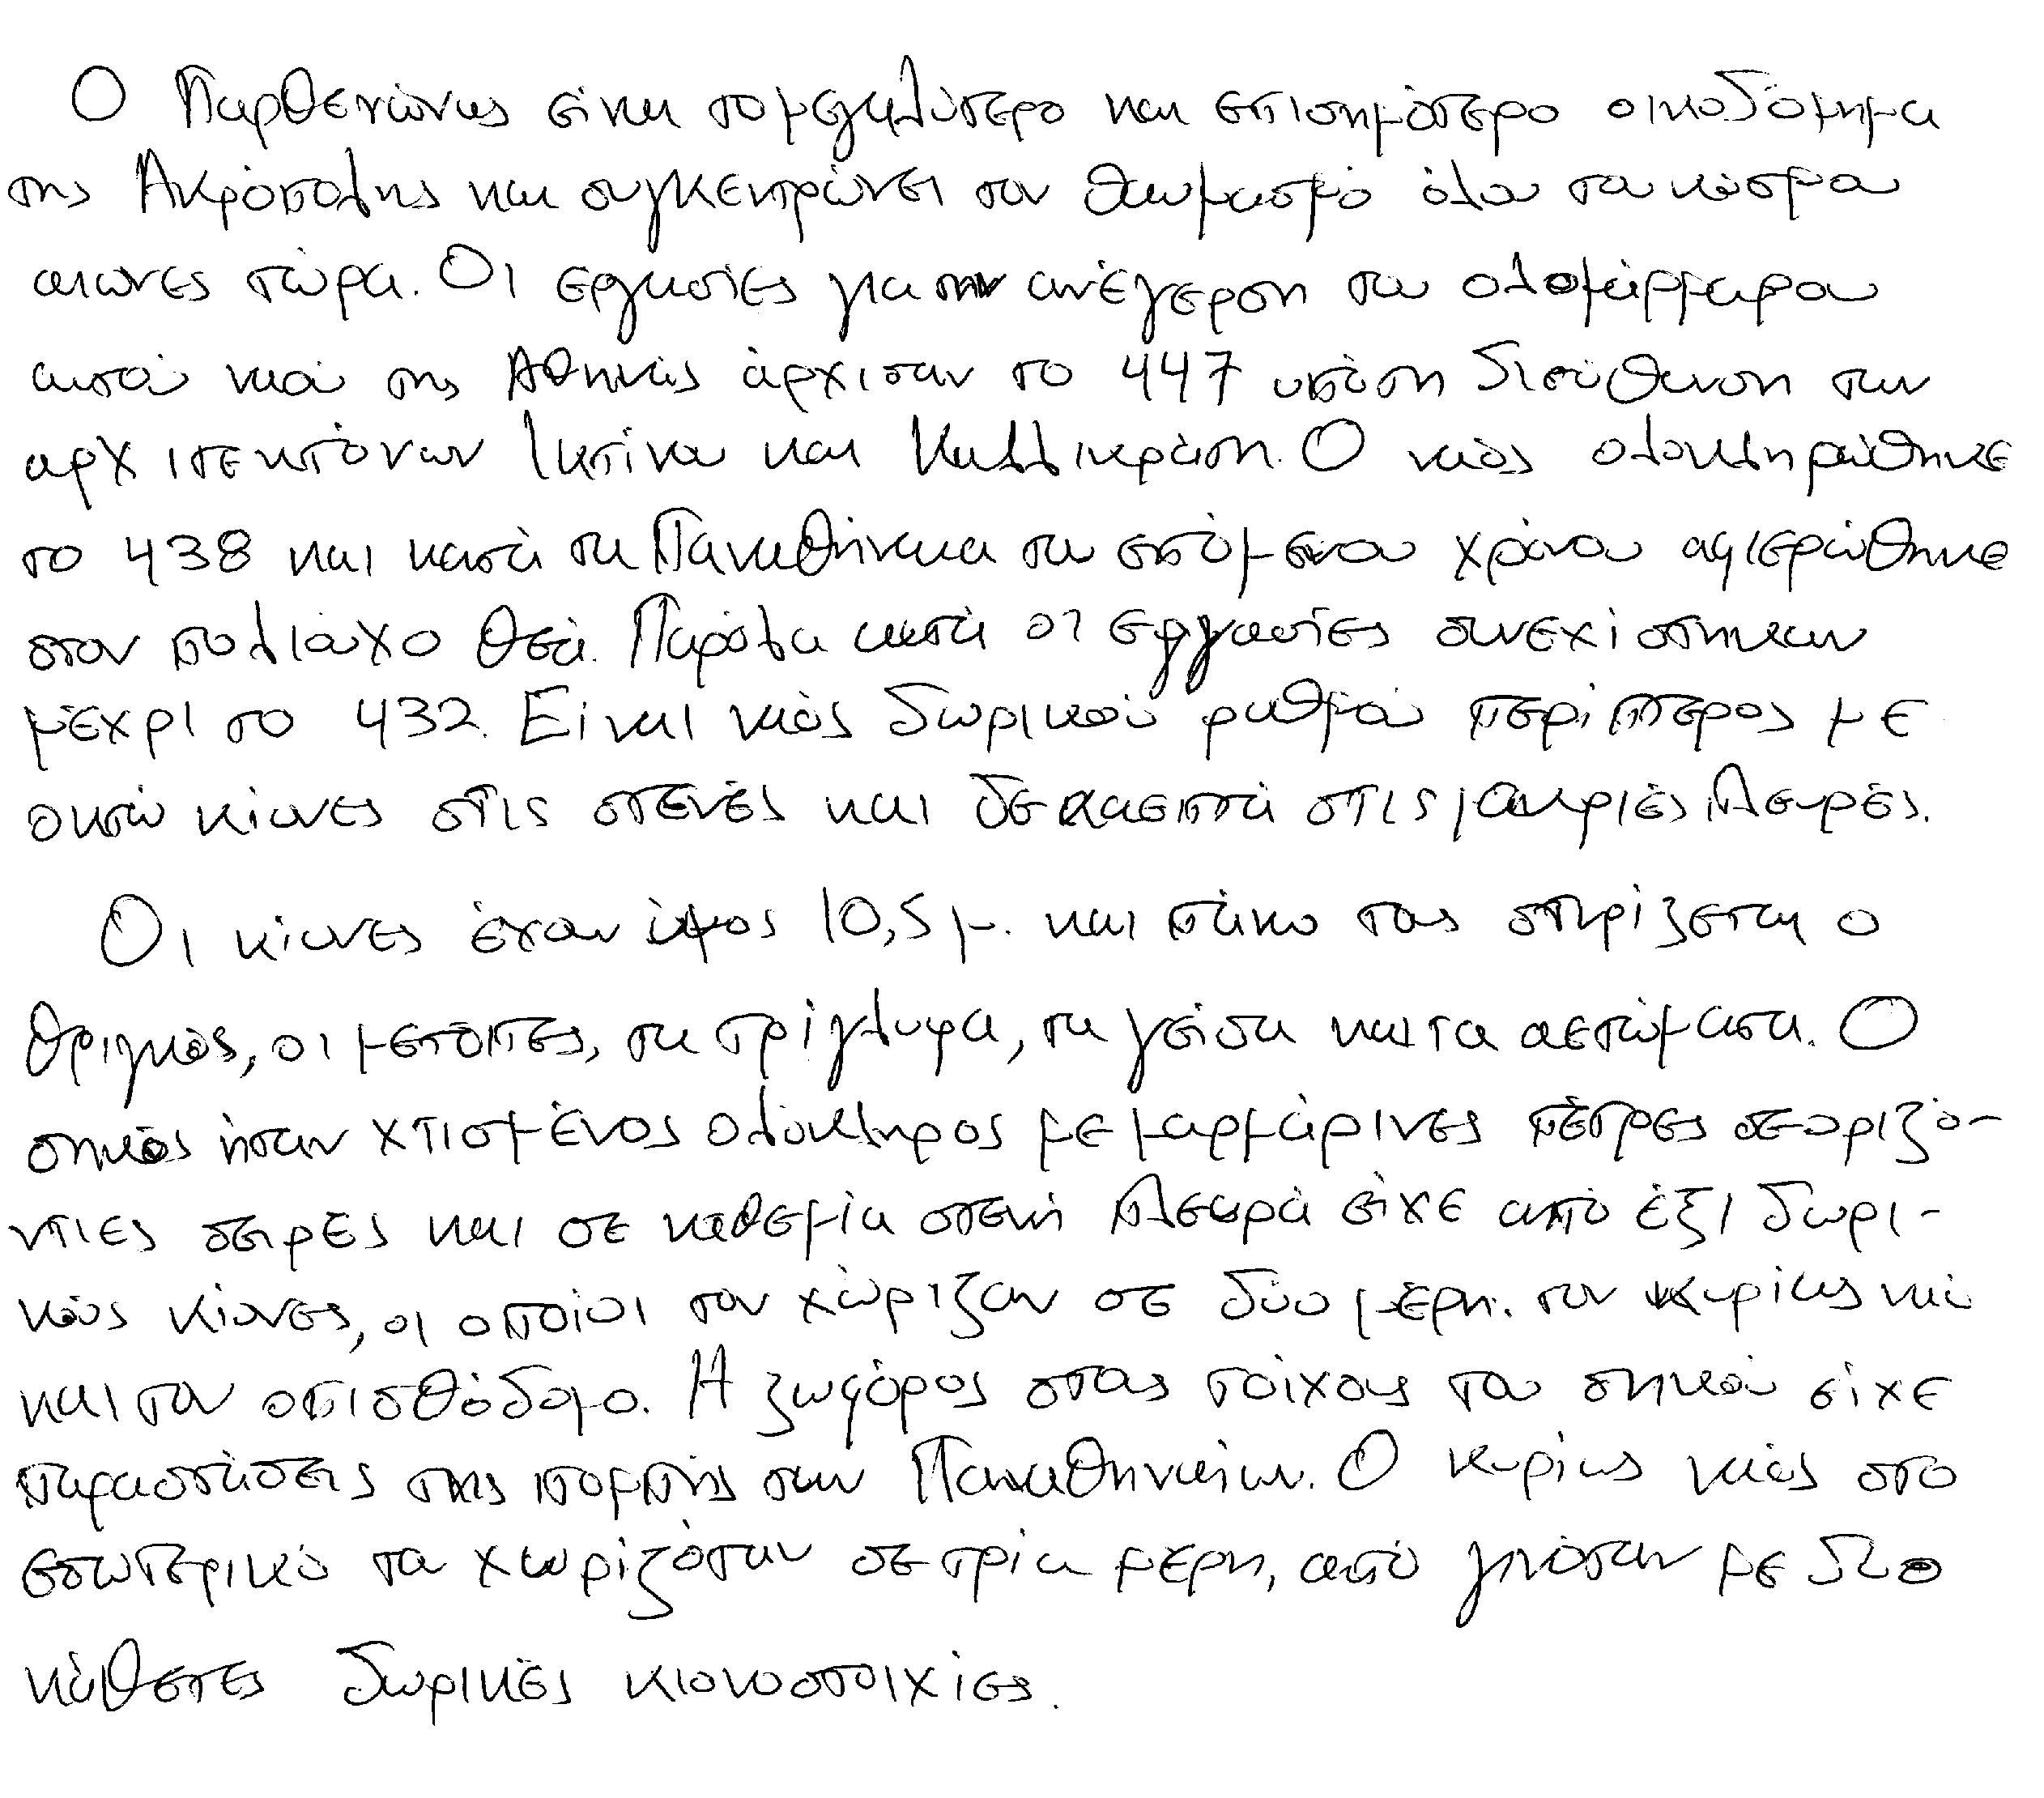 Ο Παρθενώνας είναι το μεγαλύτερο και επισημότερο οικοδόμημα
της Ακρόπολης και συγκεντρώνει τον θαυμασμό όλου του κόσμου
αιώνες τώρα. Οι εργασίες για την ανέγερση του ολομάρμαρου
αυτού ναού της Αθηνάς άρχισαν το 447 υπό τη διεύθυνση των
αρχιτεκτόνων Ικτίνου και Καλλικράτη. Ο ναός ολοκληρώθηκε
το 438 και κατά τα Παναθήναια του επόμενου χρόνου αφιερώθηκε
στον πολιούχο θεά. Παρόλα αυτά οι εργασίες συνεχίστηκαν
μέχρι το 432. Είναι ναός δωρικού ρυθμού περίπτερος με
οκτώ κίονες στις στενές και δεκαεπτά στις μακριές πλευρές.
Οι κίονες έχουν ύψος 10,5 μ. και πάνω τους στηρίζεται ο
θριγκός, οι μετόπες, τα τρίγλυφα, τα γείσα και τα αετώματα. Ο
σηκός ήταν χτισμένος ολόκληρος με μαρμάρινες πέτρες σε οριζό-
ντιες σειρές και σε καθεμία στενή πλευρά είχε από έξι δωρι-
κούς κίονες, οι οποίοι τον χώριζαν σε δύο μέρη. τον κυρίως ναό
και τον οπισθόδομο. Η ζωφόρος στους τοίχους του σηκού είχε
παραστάσεις της πομπής των Παναθηναίων. Ο κυρίως ναός στο
εσωτερικό του χωριζόταν σε τρία μέρη, αυτό γινόταν με δύο
κάθετες δωρικές κιονοστοιχίες.